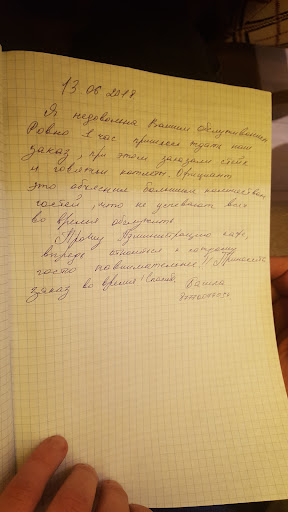 13 06 2017
Я недовольна Вашим обслуживанием
Ровно 1 час пришлось ждать наш
заказ, при этом заказали
и говяжьи котлеты. Официант
это объяснил большим количеством
гостей, что не успевают всех
во время обслужить
Прошу Администрацию кафе,
впредь относится к каждому
гостю повнимательнее!!! Приносить
заказ во время! Спасибо